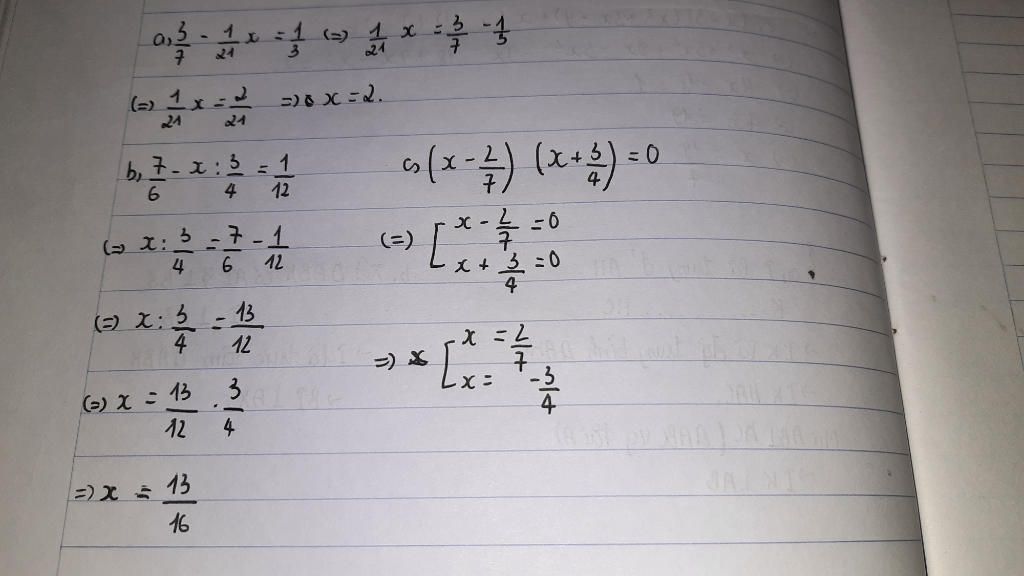 a, 3/7 - 1/21 x = 1/3 (=) 1/21 x = 3/7 - 1/3
(=) 1/21 x = 2/21 => x = 2.
b, 7/6 - x : 3/4 = 1/12
(=) x : 3/4 = 7/6 - 1/12
(=) x : 3/4 = 13/12
(=) x = 13/12 . 3/4
=) x = 13/16
c, (x - 2/7) (x + 3/4) = 0
(=) [ x - 2/7 = 0
x + 3/4 = 0
=) [ x = 2/7
x = -3/4